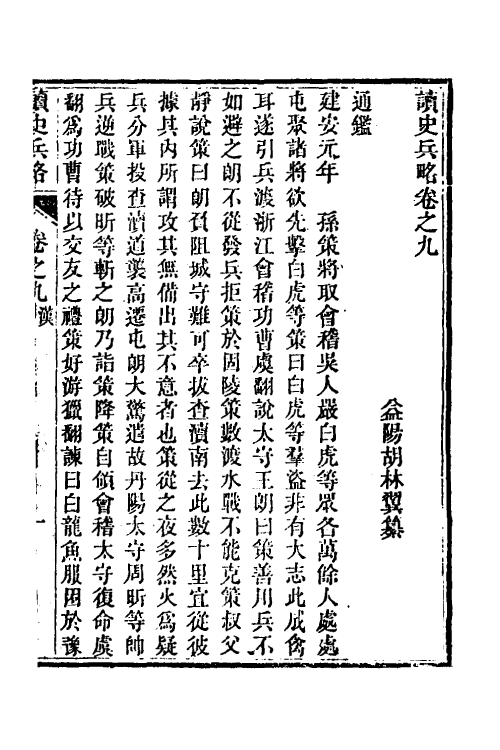 讀史兵略卷之九
益陽胡林翼纂
通鑑
建安元年　孫策將取會稽吳人嚴白虎等眾各萬餘人處處
屯聚諸將欲先擊白虎等策曰白虎等羣盜非有大志此成禽
耳遂引兵渡浙江會稽功曹虞翻說太守王朗曰策善用兵不
如避之朗不從發兵拒策於固陵策數渡水戰不能克策叔父
靜說策曰朗負阻城守難可卒拔查瀆南去此數十里宜從彼
據其內所謂攻其無備出其不意者也策從之夜多然火為疑
兵分軍投查瀆道襲高遷屯朗大驚遣故丹陽太守周昕等帥
兵逆戰策破昕等斬之朗乃詣策降策自領會稽太守復命虞
翻為功曹待以交友之禮策好游獵翻諫曰白龍魚服困於豫
讀史兵略
卷之九
漢
一